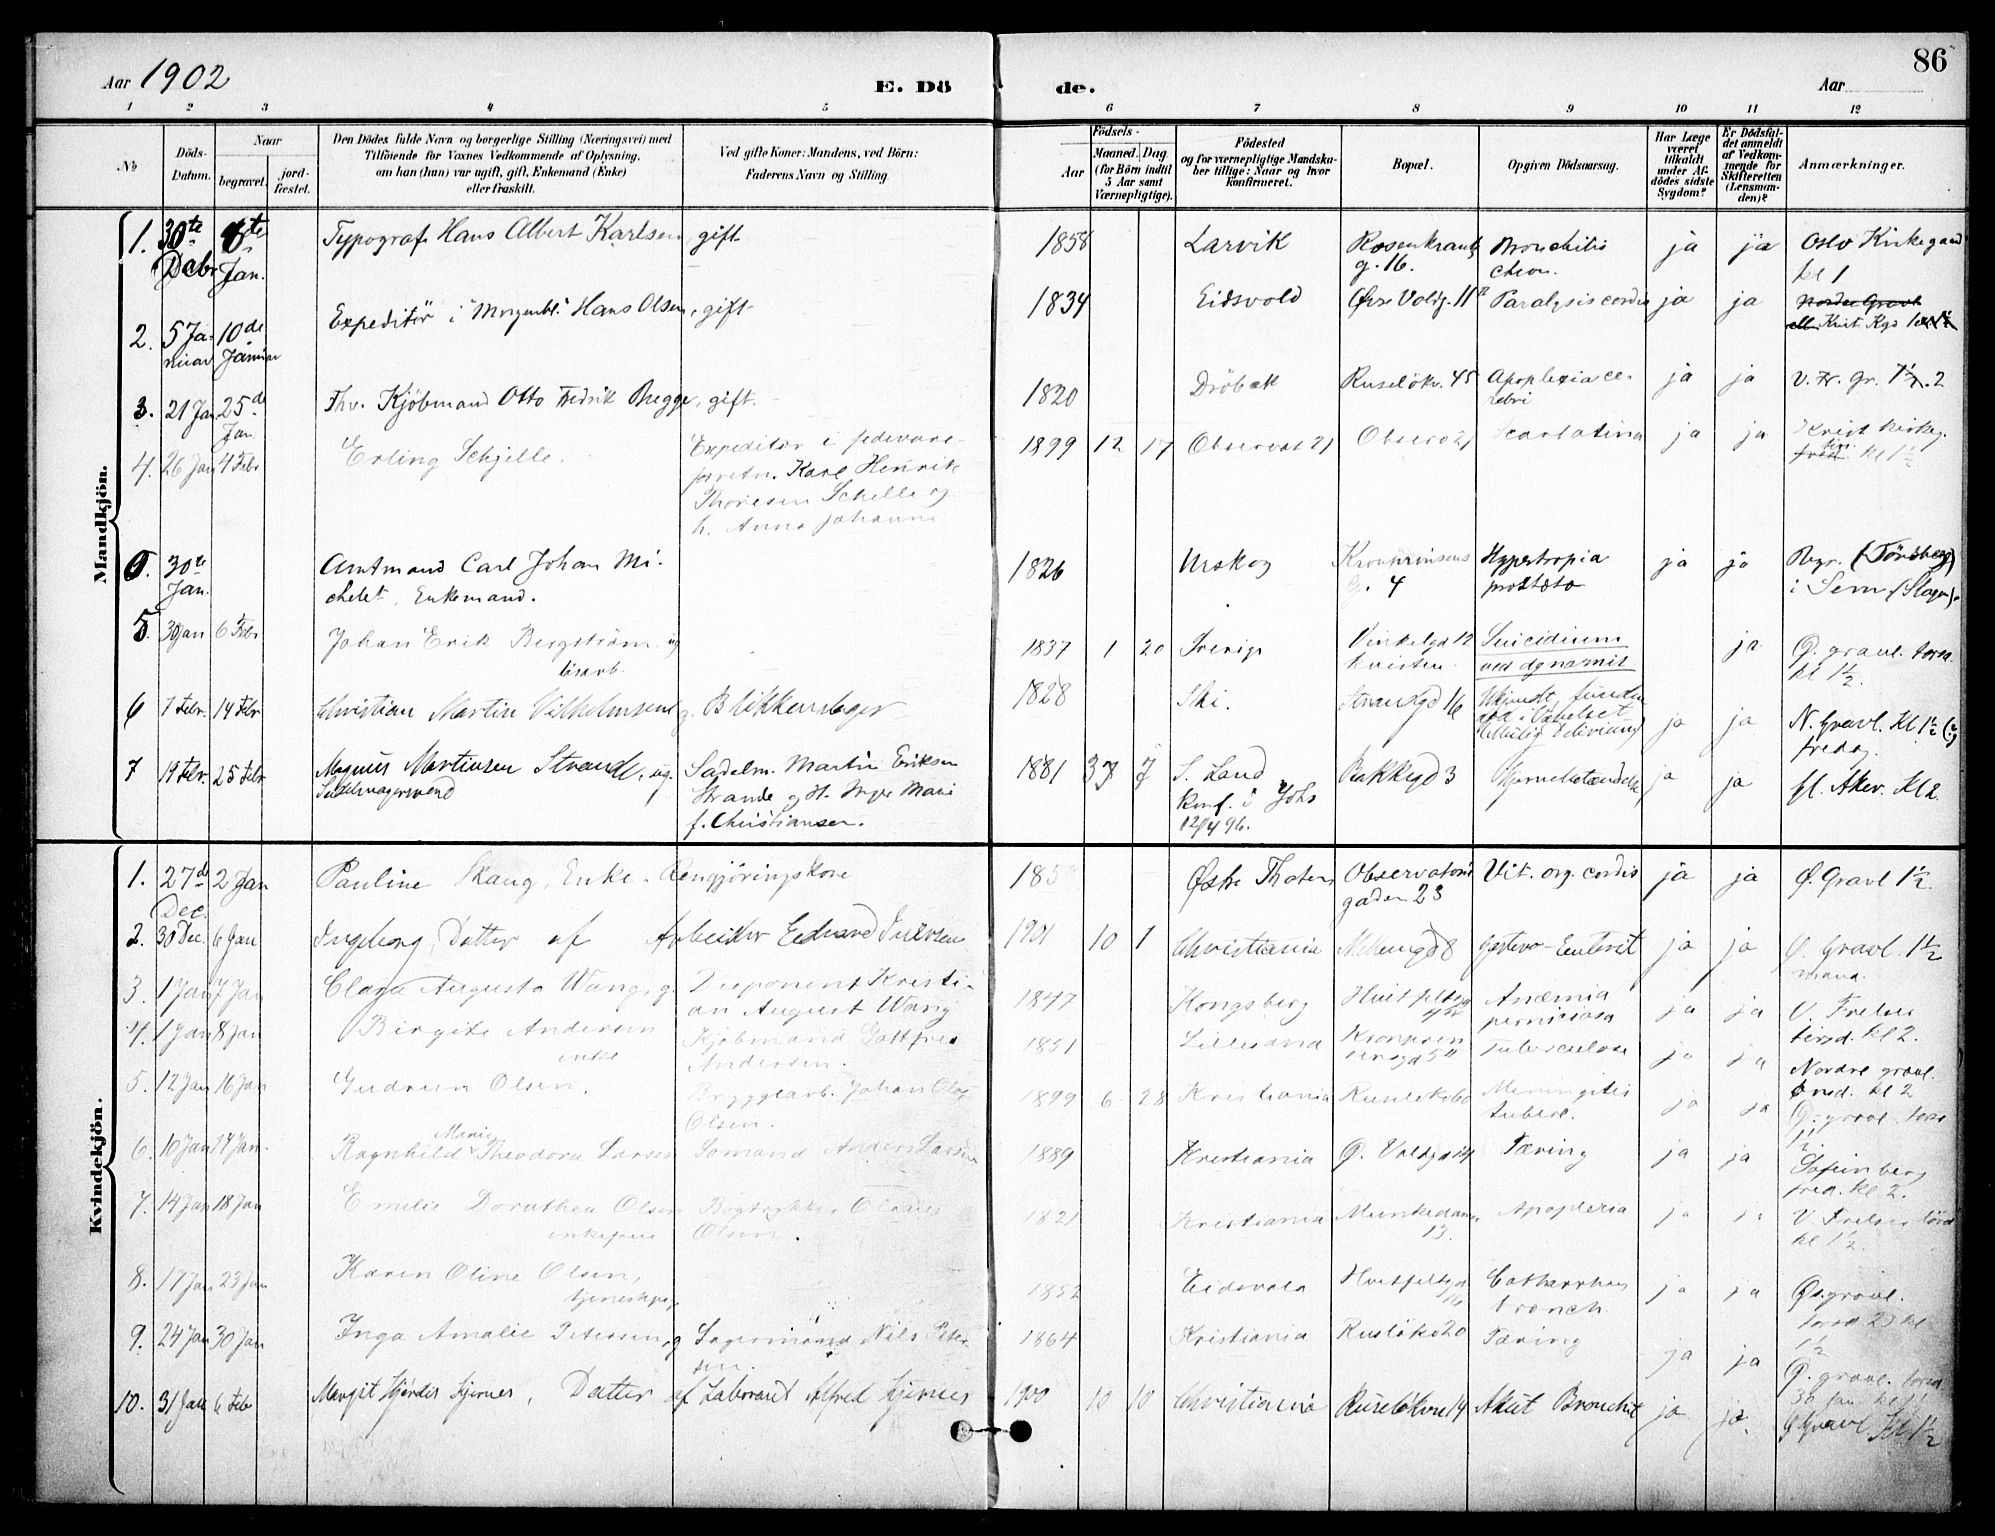 86
Aar 1902
E. Dö
de.
Aar
1 2 3 4 5 6 7 8 9 10 11 12
No
Döds-Datum.
Naar
begravet.
jord-fæstet.
Den Dödes fulde Navn og borgerlige Stilling (Næringsvei) med
Tilföiende for Voxnes Vedkommende af Oplysning,
om han (hun) var ugift, gift, Enkemand (Enke)
eller fraskilt.
Ved gifte Koner: Mandens, ved Börn:
Faderens Navn og Stilling.
Födsels-
Aar
Maaned. Dag
(for Börn indtil
5 Aar samt
Værnepligtige).
Födested
og for værnepligtige Mandska-
ber tillige: Naar og hvor
Konfirmeret.
Bopæl.
Opgiven Dödsaarsag.
Har Læge
været
tilkaldt
under Af-
dödes sidste
Sygdom?
Er Dödsfal-
det anmeldt
af Vedkom-
mende for
Skifteretten
(Lensman-
den)?
Anmærkninger.
Mandkjön.
1. 30te Decbr 6te Jan. Typograf Hans Albert Karlsen gift 1858 Larvik Rosenkrantz g. 16. Bronchitis chron. ja ja Oslo Kirkegaard kl 1
2. 5 Januar 10de Januar Expeditör i "Morgenbl." Hans Olsen, gift 1834 Eidsvold Övre Voldg. 11 Paralysis cordis ja ja Nordre Gravl Krist Kgd
3. 21 Jan 25de Jan Fhv. Kjöbmand Otto Fredrik Bugge, gift. 1820 Dröbak Ruselökv. 45 Apoplexia cerebri ja ja V. Fr. Gr. 2
4. 26 Jan 4 Febr Erling Schjelle. Expeditör i fedevare-
forretn. Karl Henrik
Thoresen Schelle og
h. Anna Johanne
1899 12 17 Observat 21 Observ 21 Scarlatina ja ja Krist kirkeg. kl 1½
0. 30te Jan. Amtmand Carl Johan Mi-
chelet, Enkemand.
1826 Urskog Kronprinsens g. 4 Hypertropia prostata ja ja Begr. (Tönsberg)
i Sem (Slagen).
5. 30 Jan 6 Febr Johan Erik Bergström ug
lösarb.
1837 1 20 Sverige Vinkelgd 12 Suicidium
ved dynamit ja Ö. gravl. torsd.
kl 1½.
6 7 Febr. 14 Febr Christian Martin Vilhelmsen g. Blikkenslager 1828 Ski. Strandgd 16 ja ja N. Gravl. Kl 1½
fredag.
7 19 Febr. 25 Febr Magnus Martinsen Strande, ug.
Sadelmagersvend
Sadelm. Martin Eriksen
Strande og H. Inger Marie
f. Christiansen.
1881 3 7 S. Land
Konf. i Johs
12/4 96.
Bakkegd 3 Hjernebetændelse ja ja V. Aker. Kl 2.
Kvindekjön.
1. 27de Dec. 2 Jan Pauline Skaug, Enke. Rengjöringskone Østre Thoten Observatorie
gaden 23 Vit. org. cordis ja ja Ø. Gravl 1½.
2. 30 Dec. 6 Jan Ingeborg, Datter af Arbeider Edvard Iversen 1901 10 1 Christiania Gastero-Enterit ja ja Ø. Gravl. 1½
mand.
3. 1 Jan 7 Jan Clara Augusta Wang, g. Disponent Kristi-
an August Wang
1847 Kongsberg Huitfeldtsg Anæmia
perniciosa ja ja V. Frelser
tirsd. kl 2.
4. 1 Jan 8 Jan Birgite Andersen
enke
Kjöbmand Gottfred
Andersen.
1851 Lillesand Kronprin
sensgd 5 Tuberculose ja ja Nordre gravl.
onsd. kl 2
5. 12 Jan 16 Jan Gudrun Olsen. Bryggearb. Johan Olaf
Olsen.
1899 6 28 Kristiania Ruselökv Meningitis
tuberc. ja ja Ö. gravl. torsd
1½
6. 10 Jan 17 Jan. Ragnhild Marie Theodora Larsen Sömand Anders Larsen 1889 Kristiania Ö. Voldgd 14 Tæring ja ja Sofienberg
fred. kl 2.
7. 14 Jan 18 Jan Emilie Dorothea Olsen
enkefrue
Bogtrykker
Olsen.
1821 Kristiania Munkedams
13. Apoplexia ja ja V. Frelser lörd
kl 1½.
8. 17 Jan 23 Jan Karen Oline Olsen,
tjenestepige
1852 Eidsvold Huitfeldtsgd
16 Catharrhus
bronch. ja ja Øs. gravl.
torsd 23 kl
1½
9. 24 Jan 30 Jan Inga Amalie Petersen, g Lagermand Nils Peter-
sen.
1864 Kristiania Ruselökv 20 Tæring ja ja Ö. gravl. torsd
30 Jan kl 1½
10. 31 Jan 6 Feb Margit Hjördis Hjernes, Datter af Laborant Alfred Hjernes 1900 10 10 Christiania Ruselökve 14 Akut Bronchit ja ja. Ö Gravl Kl 1½